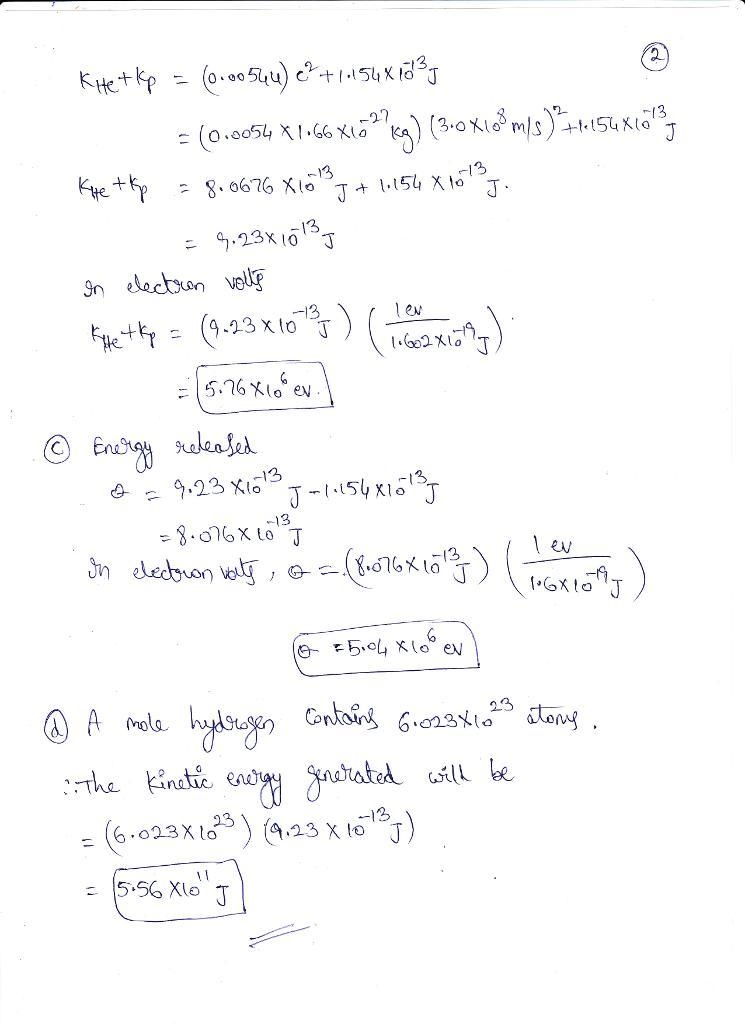 ②
K_He + K_p = (0.00544) c² + 1.154 × 10⁻¹³ J
= (0.0054 × 1.66 × 10⁻²⁷ kg) (3.0 × 10⁸ m/s)² + 1.154 × 10⁻¹³ J
K_He + K_p = 8.0676 × 10⁻¹³ J + 1.154 × 10⁻¹³ J.
= 9.23 × 10⁻¹³ J
In electron volts
K_He + K_p = (9.23 × 10⁻¹³ J) (1 ev / 1.602 × 10⁻¹⁹ J)
= 5.76 × 10⁶ ev.
ⓒ Energy released
Q = 9.23 × 10⁻¹³ J - 1.154 × 10⁻¹³ J
= 8.076 × 10⁻¹³ J
In electron volts, Q = (8.076 × 10⁻¹³ J) (1 ev / 1.6 × 10⁻¹⁹ J)
Q = 5.04 × 10⁶ ev
ⓓ A mole hydrogen contains 6.023 × 10²³ atoms.
∴ The Kinetic energy generated will be
= (6.023 × 10²³) (9.23 × 10⁻¹³ J)
= 5.56 × 10¹¹ J